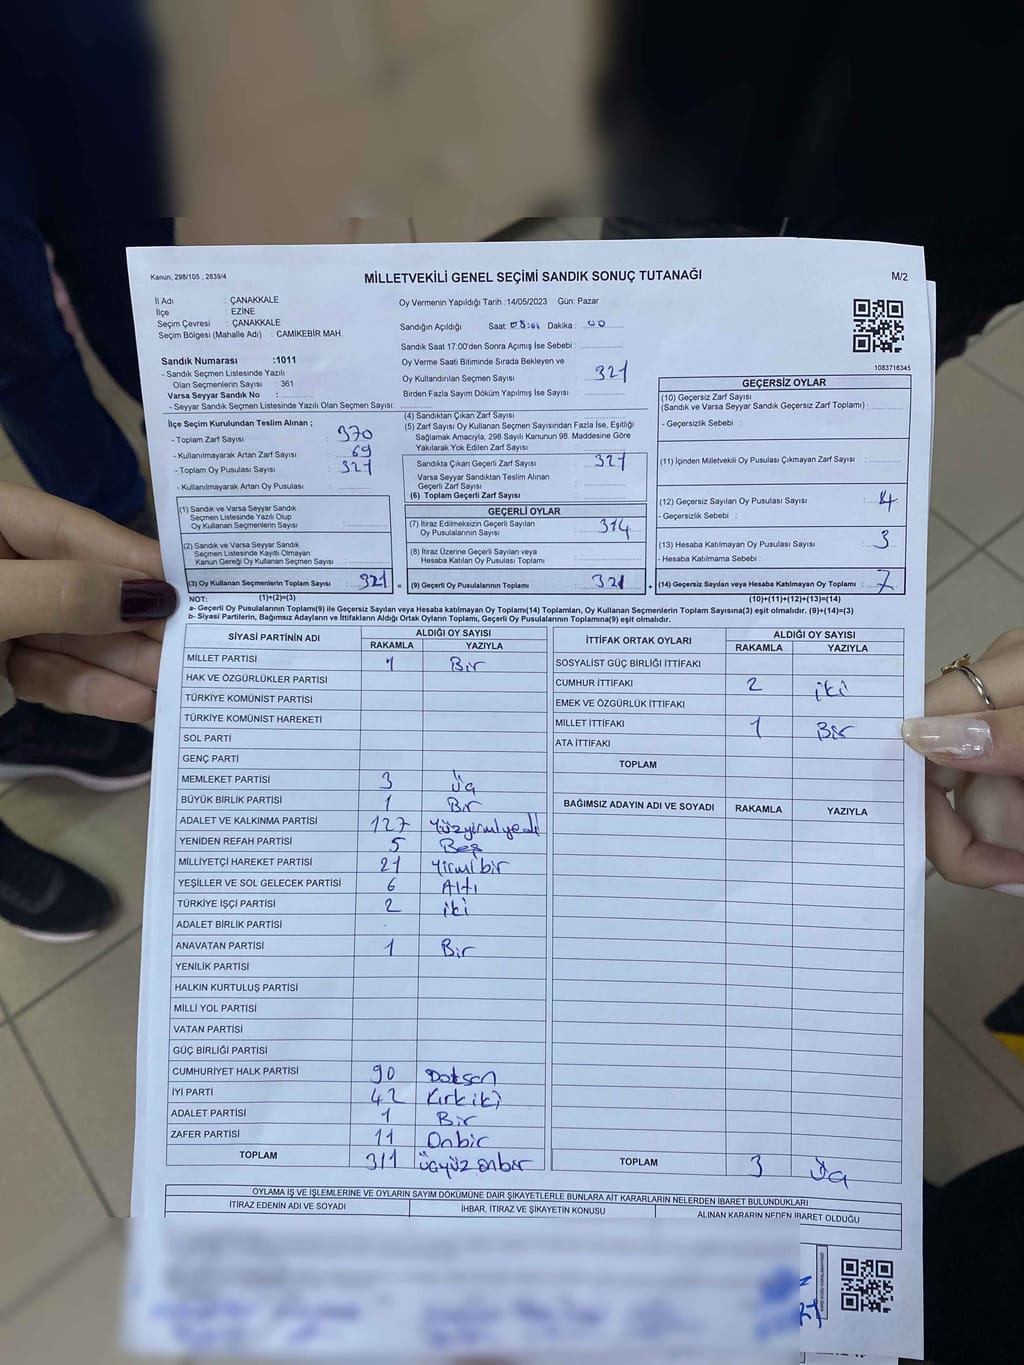 Kanun; 298/105 , 2839/4
MİLLETVEKİLİ GENEL SEÇİMİ SANDIK SONUÇ TUTANAĞI
M/2
İl Adı : ÇANAKKALE
İlçe : EZİNE
Seçim Çevresi : ÇANAKKALE
Seçim Bölgesi (Mahalle Adı) : CAMİKEBİR MAH.
Sandık Numarası :1011
- Sandık Seçmen Listesinde Yazılı
Olan Seçmenlerin Sayısı : 361
Varsa Seyyar Sandık No :
- Seyyar Sandık Seçmen Listesinde Yazılı Olan Seçmen Sayısı:
İlçe Seçim Kurulundan Teslim Alınan ;
- Toplam Zarf Sayısı : 370
- Kullanılmayarak Artan Zarf Sayısı : 69
- Toplam Oy Pusulası Sayısı : 321
- Kullanılmayarak Artan Oy Pusulası :
(1) Sandık ve Varsa Seyyar Sandık
Seçmen Listesinde Yazılı Olup
Oy Kullanan Seçmenlerin Sayısı :
(2) Sandık ve Varsa Seyyar Sandık
Seçmen Listesinde Kayıtlı Olmayan
Kanun Gereği Oy Kullanan Seçmen Sayısı :
(3) Oy Kullanan Seçmenlerin Toplam Sayısı : 321 =
Oy Vermenin Yapıldığı Tarih :14/05/2023 Gün: Pazar
Sandığın Açıldığı Saat: Dakika : 00
Sandık Saat 17:00'den Sonra Açımış İse Sebebi :
Oy Verme Saati Bitiminde Sırada Bekleyen ve
Oy Kullandırılan Seçmen Sayısı : 321
Birden Fazla Sayım Döküm Yapılmış İse Sayısı :
(4) Sandıktan Çıkan Zarf Sayısı :
(5) Zarf Sayısı Oy Kullanan Seçmen Sayısından Fazla İse, Eşitliği
Sağlamak Amacıyla, 298 Sayılı Kanunun 98. Maddesine Göre
Yakılarak Yok Edilen Zarf Sayısı :
Sandıkta Çıkan Geçerli Zarf Sayısı : 321
Varsa Seyyar Sandıktan Teslim Alınan
Geçerli Zarf Sayısı :
(6) Toplam Geçerli Zarf Sayısı :
GEÇERLİ OYLAR
(7) İtiraz Edilmeksizin Geçerli Sayılan
Oy Pusulalarının Toplamı : 314
(8) İtiraz Üzerine Geçerli Sayılan veya
Hesaba Katılan Oy Pusulaları Toplamı :
(9) Geçerli Oy Pusulalarının Toplamı : 321 +
1083716345
GEÇERSİZ OYLAR
(10) Geçersiz Zarf Sayısı
(Sandık ve Varsa Seyyar Sandık Geçersiz Zarf Toplamı) :
- Geçersizlik Sebebi :
(11) İçinden Milletvekili Oy Pusulası Çıkmayan Zarf Sayısı :
(12) Geçersiz Sayılan Oy Pusulası Sayısı : 4
- Geçersizlik Sebebi :
(13) Hesaba Katılmayan Oy Pusulası Sayısı : 3
- Hesaba Katılmama Sebebi :
(14) Geçersiz Sayılan veya Hesaba Katılmayan Oy Toplamı : 7
NOT: (1)+(2)=(3) (10)+(11)+(12)+(13)=(14)
a- Geçerli Oy Pusulalarının Toplamı(9) ile Geçersiz Sayılan veya Hesaba katılmayan Oy Toplamı(14) Toplamları, Oy Kullanan Seçmenlerin Toplam Sayısına(3) eşit olmalıdır. (9)+(14)=(3)
b- Siyasi Partilerin, Bağımsız Adayların ve İttifakların Aldığı Ortak Oyların Toplamı, Geçerli Oy Pusulalarının Toplamına(9) eşit olmalıdır.
SİYASİ PARTİNİN ADI ALDIĞI OY SAYISI
RAKAMLA YAZIYLA
MİLLET PARTİSİ 1 Bir
HAK VE ÖZGÜRLÜKLER PARTİSİ
TÜRKİYE KOMÜNİST PARTİSİ
TÜRKİYE KOMÜNİST HAREKETİ
SOL PARTİ
GENÇ PARTİ
MEMLEKET PARTİSİ 3 Üç
BÜYÜK BİRLİK PARTİSİ 1 Bir
ADALET VE KALKINMA PARTİSİ 127 Yüzyirmiyedi
YENİDEN REFAH PARTİSİ 5 Beş
MİLLİYETÇİ HAREKET PARTİSİ 21 Yirmibir
YEŞİLLER VE SOL GELECEK PARTİSİ 6 Altı
TÜRKİYE İŞÇİ PARTİSİ 2 iki
ADALET BİRLİK PARTİSİ
ANAVATAN PARTİSİ 1 Bir
YENİLİK PARTİSİ
HALKIN KURTULUŞ PARTİSİ
MİLLİ YOL PARTİSİ
VATAN PARTİSİ
GÜÇ BİRLİĞİ PARTİSİ
CUMHURİYET HALK PARTİSİ 90 Doksan
İYİ PARTİ 42 Kırkiki
ADALET PARTİSİ 1 Bir
ZAFER PARTİSİ 11 Onbir
TOPLAM 311 Üçyüz onbir
İTTİFAK ORTAK OYLARI ALDIĞI OY SAYISI
RAKAMLA YAZIYLA
SOSYALİST GÜÇ BİRLİĞİ İTTİFAKI
CUMHUR İTTİFAKI 2 iki
EMEK VE ÖZGÜRLÜK İTTİFAKI
MİLLET İTTİFAKI 1 Bir
ATA İTTİFAKI
TOPLAM
BAĞIMSIZ ADAYIN ADI VE SOYADI RAKAMLA YAZIYLA
TOPLAM 3 Üç
OYLAMA İŞ VE İŞLEMLERİNE VE OYLARIN SAYIM DÖKÜMÜNE DAİR ŞİKAYETLERLE BUNLARA AİT KARARLARIN NELERDEN İBARET BULUNDUKLARI
İTİRAZ EDENİN ADI VE SOYADI İHBAR, İTİRAZ VE ŞİKAYETİN KONUSU ALINAN KARARIN NEDEN İBARET OLDUĞU